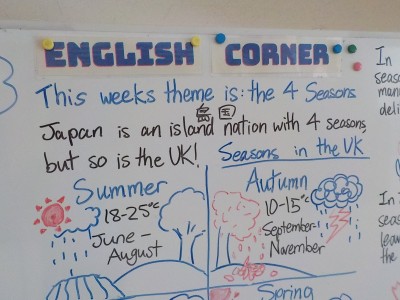 ENGLISH CORNER
This weeks theme is: the 4 Seasons
島国
Japan is an island nation with 4 seasons,
but so is the UK!
Seasons in the UK
Summer
18-25°c
June -
August
Autumn
10-15°c
September-
November
Spring
In
seaso
man
deli
In
seas
leav
the